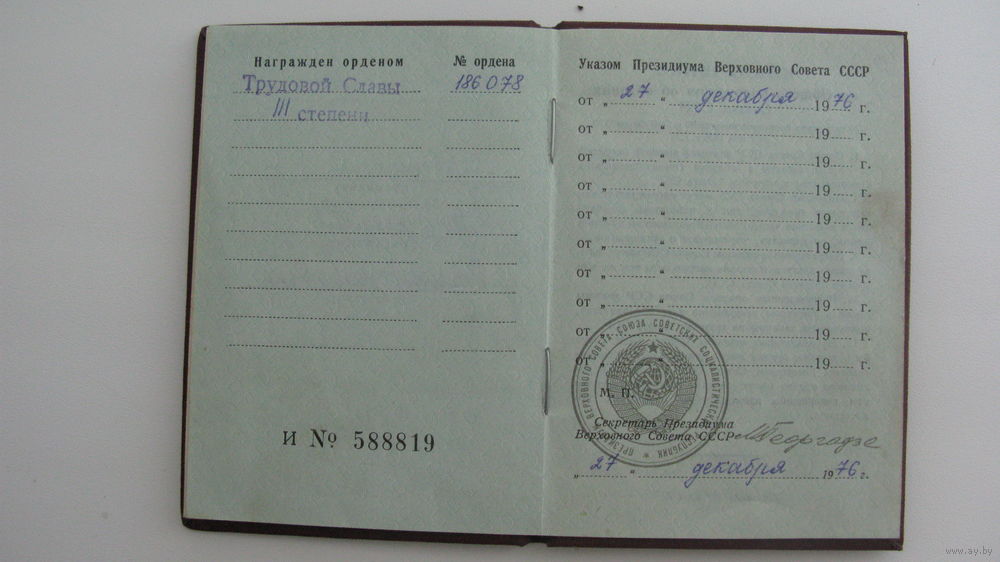 Награжден орденом
№ ордена
Трудовой Славы
186078
III степени
И № 588819
Указом Президиума Верховного Совета СССР
от „ 27 “ декабря 1976 г.
от „ “ 19 г.
от „ “ 19 г.
от „ “ 19 г.
от „ “ 19 г.
от „ “ 19 г.
от „ “ 19 г.
от „ “ 19 г.
от „ “ 19 г.
от „ “ 19 г.
ПРЕЗИДИУМ ВЕРХОВНОГО СОВЕТА СОЮЗА СОВЕТСКИХ СОЦИАЛИСТИЧЕСКИХ РЕСПУБЛИК
М. П.
Секретарь Президиума
Верховного Совета СССР
М Георгадзе
„ 27 “ декабря 1976 г.
www.ay.by